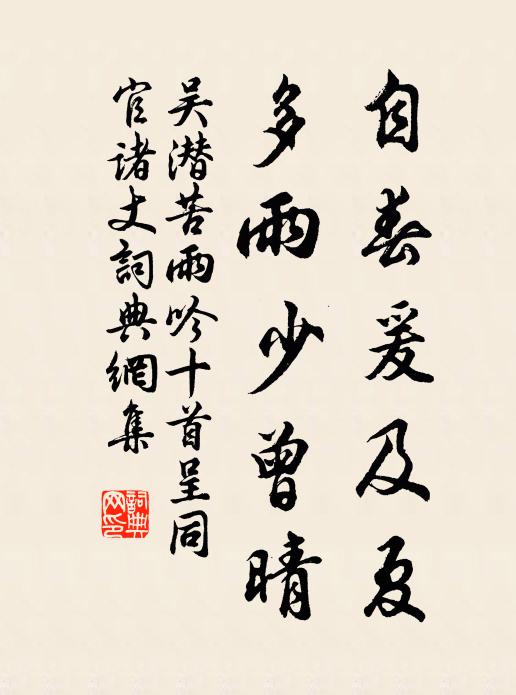 自春爰及夏
多雨少曾晴
吴潜苦雨吟十首呈同
官诸丈詞典網集
詞典
网印